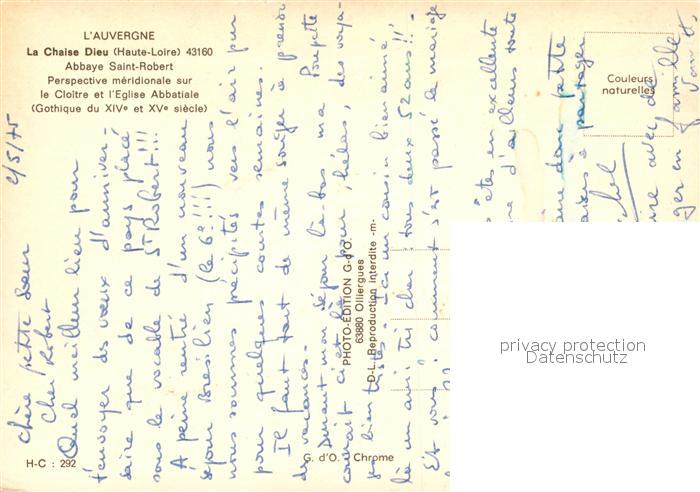 L'AUVERGNE
La Chaise Dieu (Haute-Loire) 43160
Abbaye Saint-Robert
Perspective méridionale sur
le Cloître et l'Eglise Abbatiale
(Gothique du XIVe et XVe siècle)
Couleurs
naturelles
PHOTO-EDITION G-d'O.
63880 Olliergues
D-L. Reproduction interdite -m-
H-C : 292
G. d'O. - Chrome
privacy protection
Datenschutz
2/5/75
Chère petite Sœur
Cher Robert
Quel meilleur lieu pour
t'envoyer des vœux d'anniver-
saire que de ce pays placé
sous le vocable de St Robert!!!
À peine rentré d'un nouveau
séjour Brésilien (le 6e!!!) nous
nous sommes précipités vers l'air pur
pour quelques courtes semaines.
Il faut tout de même songer à prendre
des vacances.
Durant mon séjour là-bas ma Poupette
courait c'est bien pour, hélas, des voya-
ges bien tristes. Ici un cousin bien aimé
là un ami très cher tous deux 52 ans!!.
Et vous? comment s'est passé le mariage
êtes en excellente
d'ailleurs toute
donc patte
à partager
avec
en famille